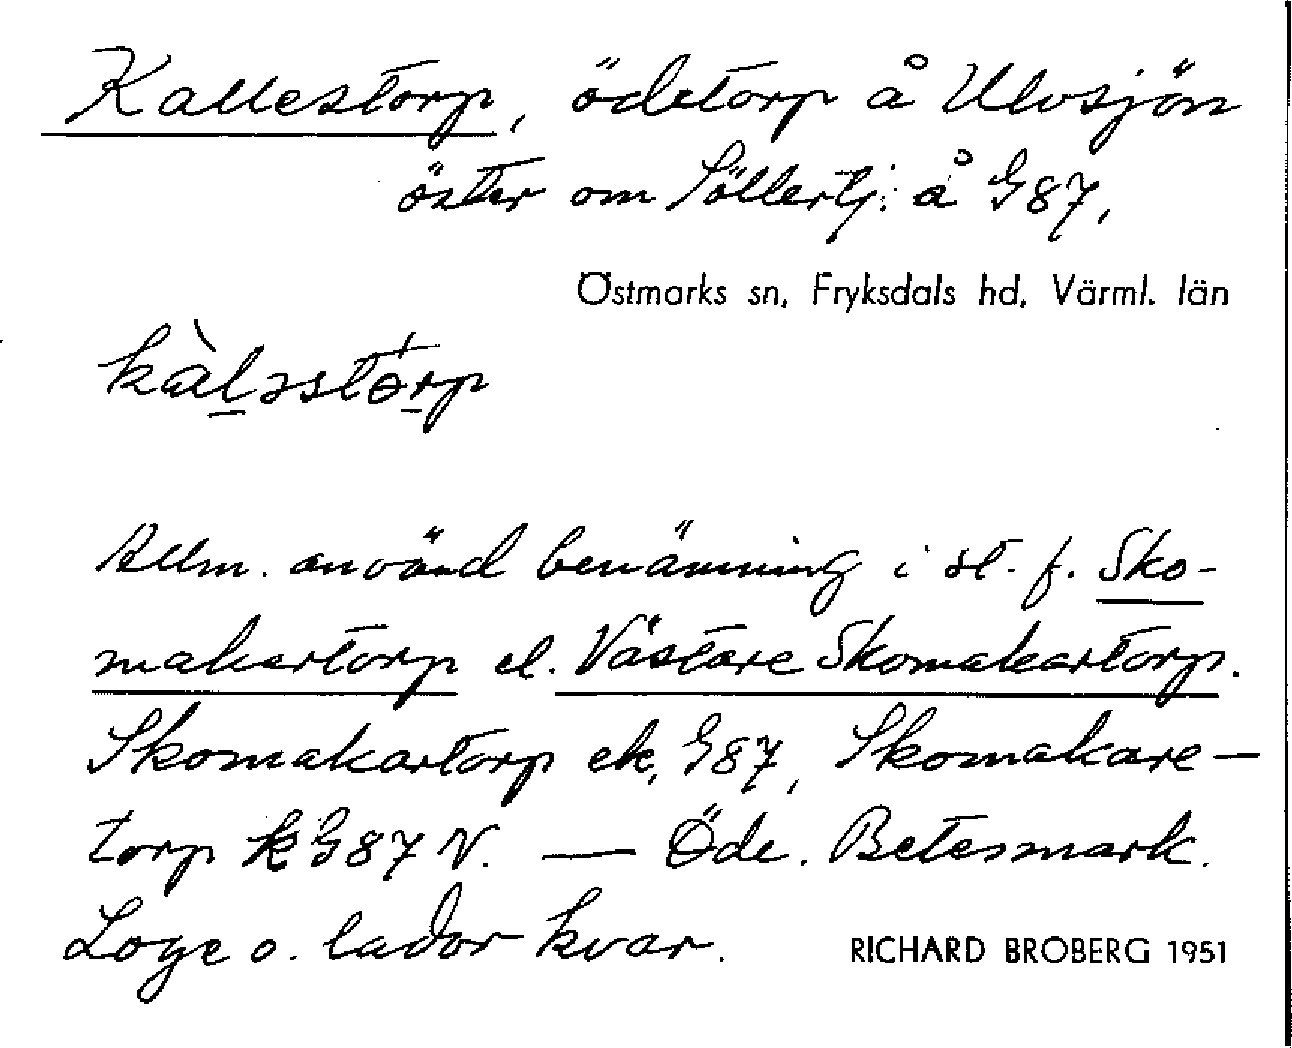 Kallestorp, ödetorp å Ulvsjön
öster om Söllertj. å G87,
Östmarks sn, Fryksdals hd, Värml. län
kàləstòrp
Allm. använd benämning i st. f. Sko-
makartorp el. Västare Skomakartorp.
Skomakartorp ek, G87, Skomakare-
torp k G87 N. — Öde. Betesmark.
Loge o. lador kvar.
RICHARD BROBERG 1951